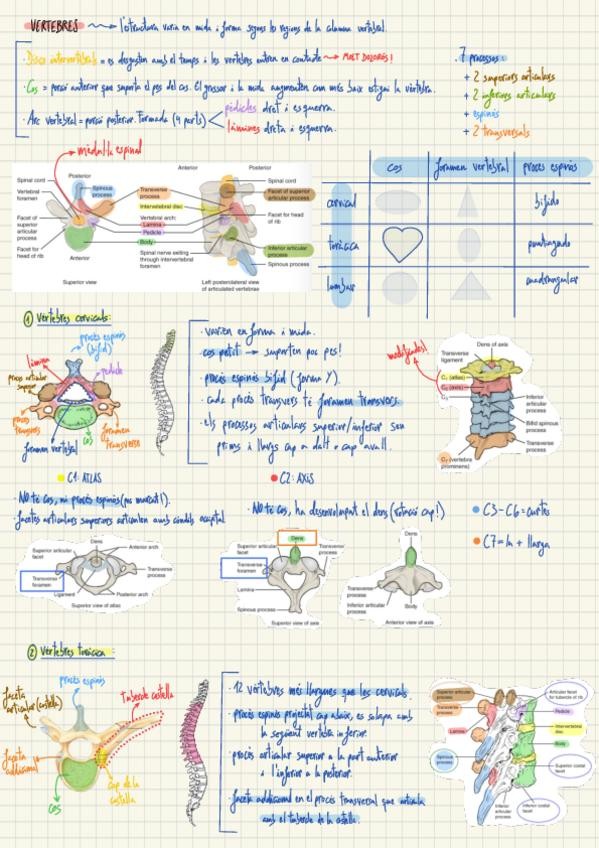 VERTEBRES → l'estructura varia en mida i forma segons les regions de la columna vertebral.
· Disco intervertebral = es desgasten amb el temps i les vertebres entren en contacte → MOLT DOLORÓS!
· Cos = porció anterior que suporta el pes del cos. El grossor i la mida augmenten com més baix estigui la vertebra.
· Arc vertebral = porció posterior. Formada (4 parts)
pedicles dret i esquerra.
làmines dreta i esquerra.
7 processos:
+ 2 superiors articulars
+ 2 inferiors articulars
+ espinós
+ 2 transversals
medul·la espinal
Posterior
Spinal cord
Vertebral foramen
Facet of superior articular process
Facet for head of rib
Spinous process
Anterior
Superior view
Transverse process
Intervertebral disc
Vertebral arch:
Lamina
Pedicle
Body
Spinal nerve exiting through intervertebral foramen
Anterior
Posterior
Spinal cord
Facet of superior articular process
Facet for head of rib
Inferior articular process
Spinous process
Left posterolateral view of articulated vertebrae
cos
foramen vertebral
procés espinós
cervical
bífido
toràcica
puntiagudo
lumbar
quadrangular
1 Vertebres cervicals:
procés espinós (bífid)
làmina
pedicle
procés articular superior
procés transvers
foramen vertebral
cos
foramen transverse
· varien en forma i mida.
· cos petit → suporten poc pes!
· procés espinós bífid (forma Y).
· cada procés transvers té foramen transvers.
· els processos articulars superior/inferior son
prims i llargs cap a dalt o cap avall.
modificades!
Dens of axis
Transverse ligament
C1 (atlas)
C2 (axis)
C3
Inferior articular process
Bifid spinous process
Transverse process
C7 (vertebra prominens)
C1: ATLAS
· NO té cos, ni procés espinós (poc marcat!).
· facetes articulars superiors articulen amb còndils occipital.
C2: AXIS
· NO té cos, ha desenvolupat el dens (rotació cap!)
C3-C6 = curtes
C7 = la + llarga
Dens
Superior articular facet
Anterior arch
Transverse foramen
Transverse process
Ligament
Posterior arch
Superior view of atlas
Dens
Superior articular facet
Transverse process
Transverse foramen
Lamina
Spinous process
Superior view of axis
Dens
Transverse foramen
Inferior articular process
Body
Anterior view of axis
2 Vertebres toràcica:
procés espinós
faceta articular (costella)
tubercle costella
faceta addicional
cap de la costella
cos
· 12 vertebres més llargues que les cervicals.
· procés espinós projectat cap abaix, es solapa amb
la següent vertebra inferior.
· procés articular superior a la part anterior
i l'inferior a la posterior.
· faceta addicional en el procés transversal que articula
amb el tubercle de la costella.
Superior articular process
Transverse process
Lamina
Spinous process
Inferior articular process
Inferior costal facet
Articular facet for tubercle of rib
Pedicle
Intervertebral disc
Body
Superior costal facet